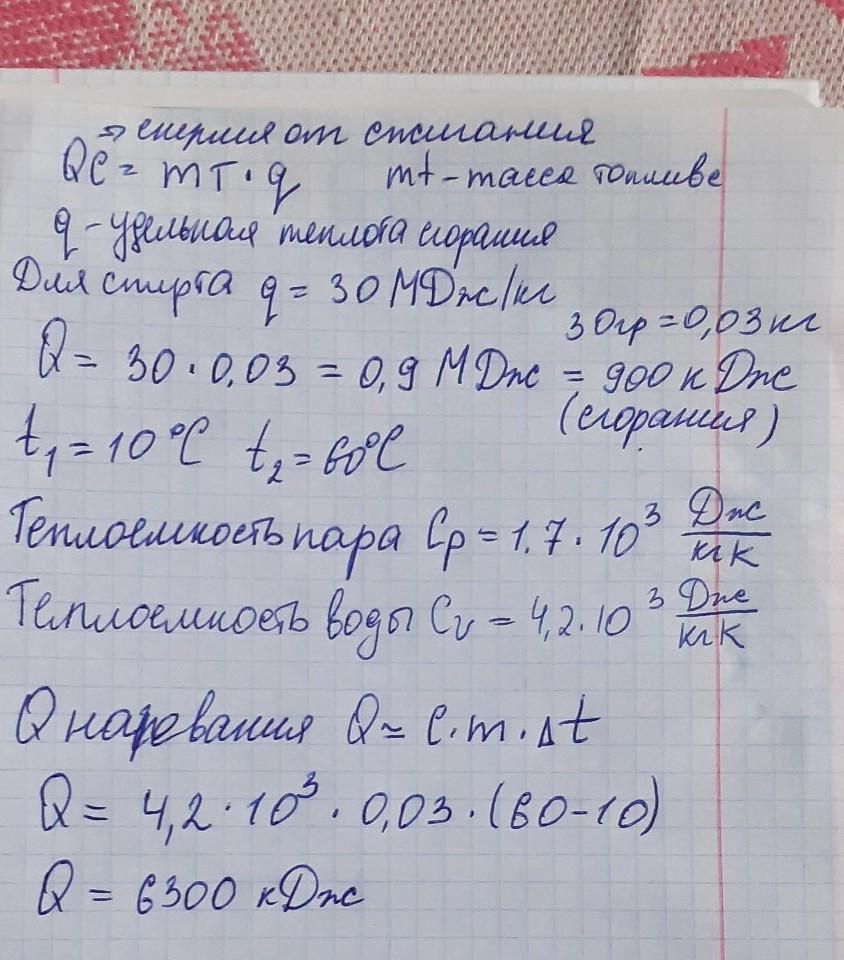 => енергия от сжигания
QC = mT · q mt - масса топливе
q - удельная теплота сгорания
Для спирта q = 30 МДж/кг
30гр = 0,03 кг
Q = 30 · 0,03 = 0,9 МДж = 900 кДж
(сгорания)
t₁ = 10 °C t₂ = 60°C
Теплоемкость пара Cp = 1,7 · 10³ Дж/кг К
Теплоемкость воды Cv = 4,2 · 10³ Дж/кг К
Q наревания Q = C · m · Δt
Q = 4,2 · 10³ · 0,03 · (60 - 10)
Q = 6300 кДж